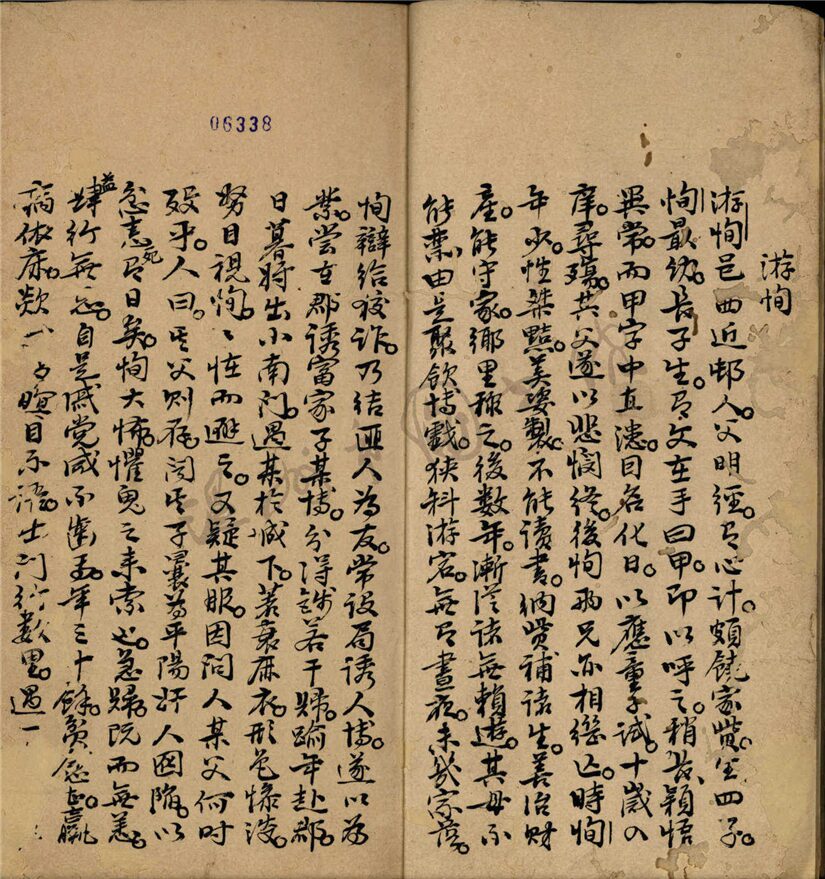 游恂
游恂邑西近邨人。父明經。有心計。頗饒家貲。生四子。
恂最幼。長子生。有文在手曰甲。即以呼之。稍長穎悟
異常。而甲字中直漶。因名化日。以應童子試。十歲入
庠。尋殤。其父遂以悲終。後恂兩兄亦相繼亡。時恂
年少。性桀黠。美姿製。不能讀書。納貲補諸生。善治財
產。能守家。鄉里称之。後數年。漸從諸無賴遊。其母不
能禁。由是聚飲博戲。狹斜游宕。無有晝夜。未幾家落。
06338
恂辯給狡詐。乃結匪人為友。常設局誘人博。遂以為
業。嘗在郡誘富家子某博。分得錢若干歸。踰年赴郡。
日暮將出小南門。遇某於城下。著衰麻衣。形色慘淡。
努目視恂。〻怪而避之。又疑其服。因問人某父何时
殁乎。人曰。其父則存。聞其子曩為平陽奸人因陷。以
忿恚死有日矣。恂大怖。懼鬼之来索也。急歸。既而無恙。
益肆行無忌。自是戚党咸不齒。年三十餘。貧愈甚。羸
病依目不語。出門行數里。遇一